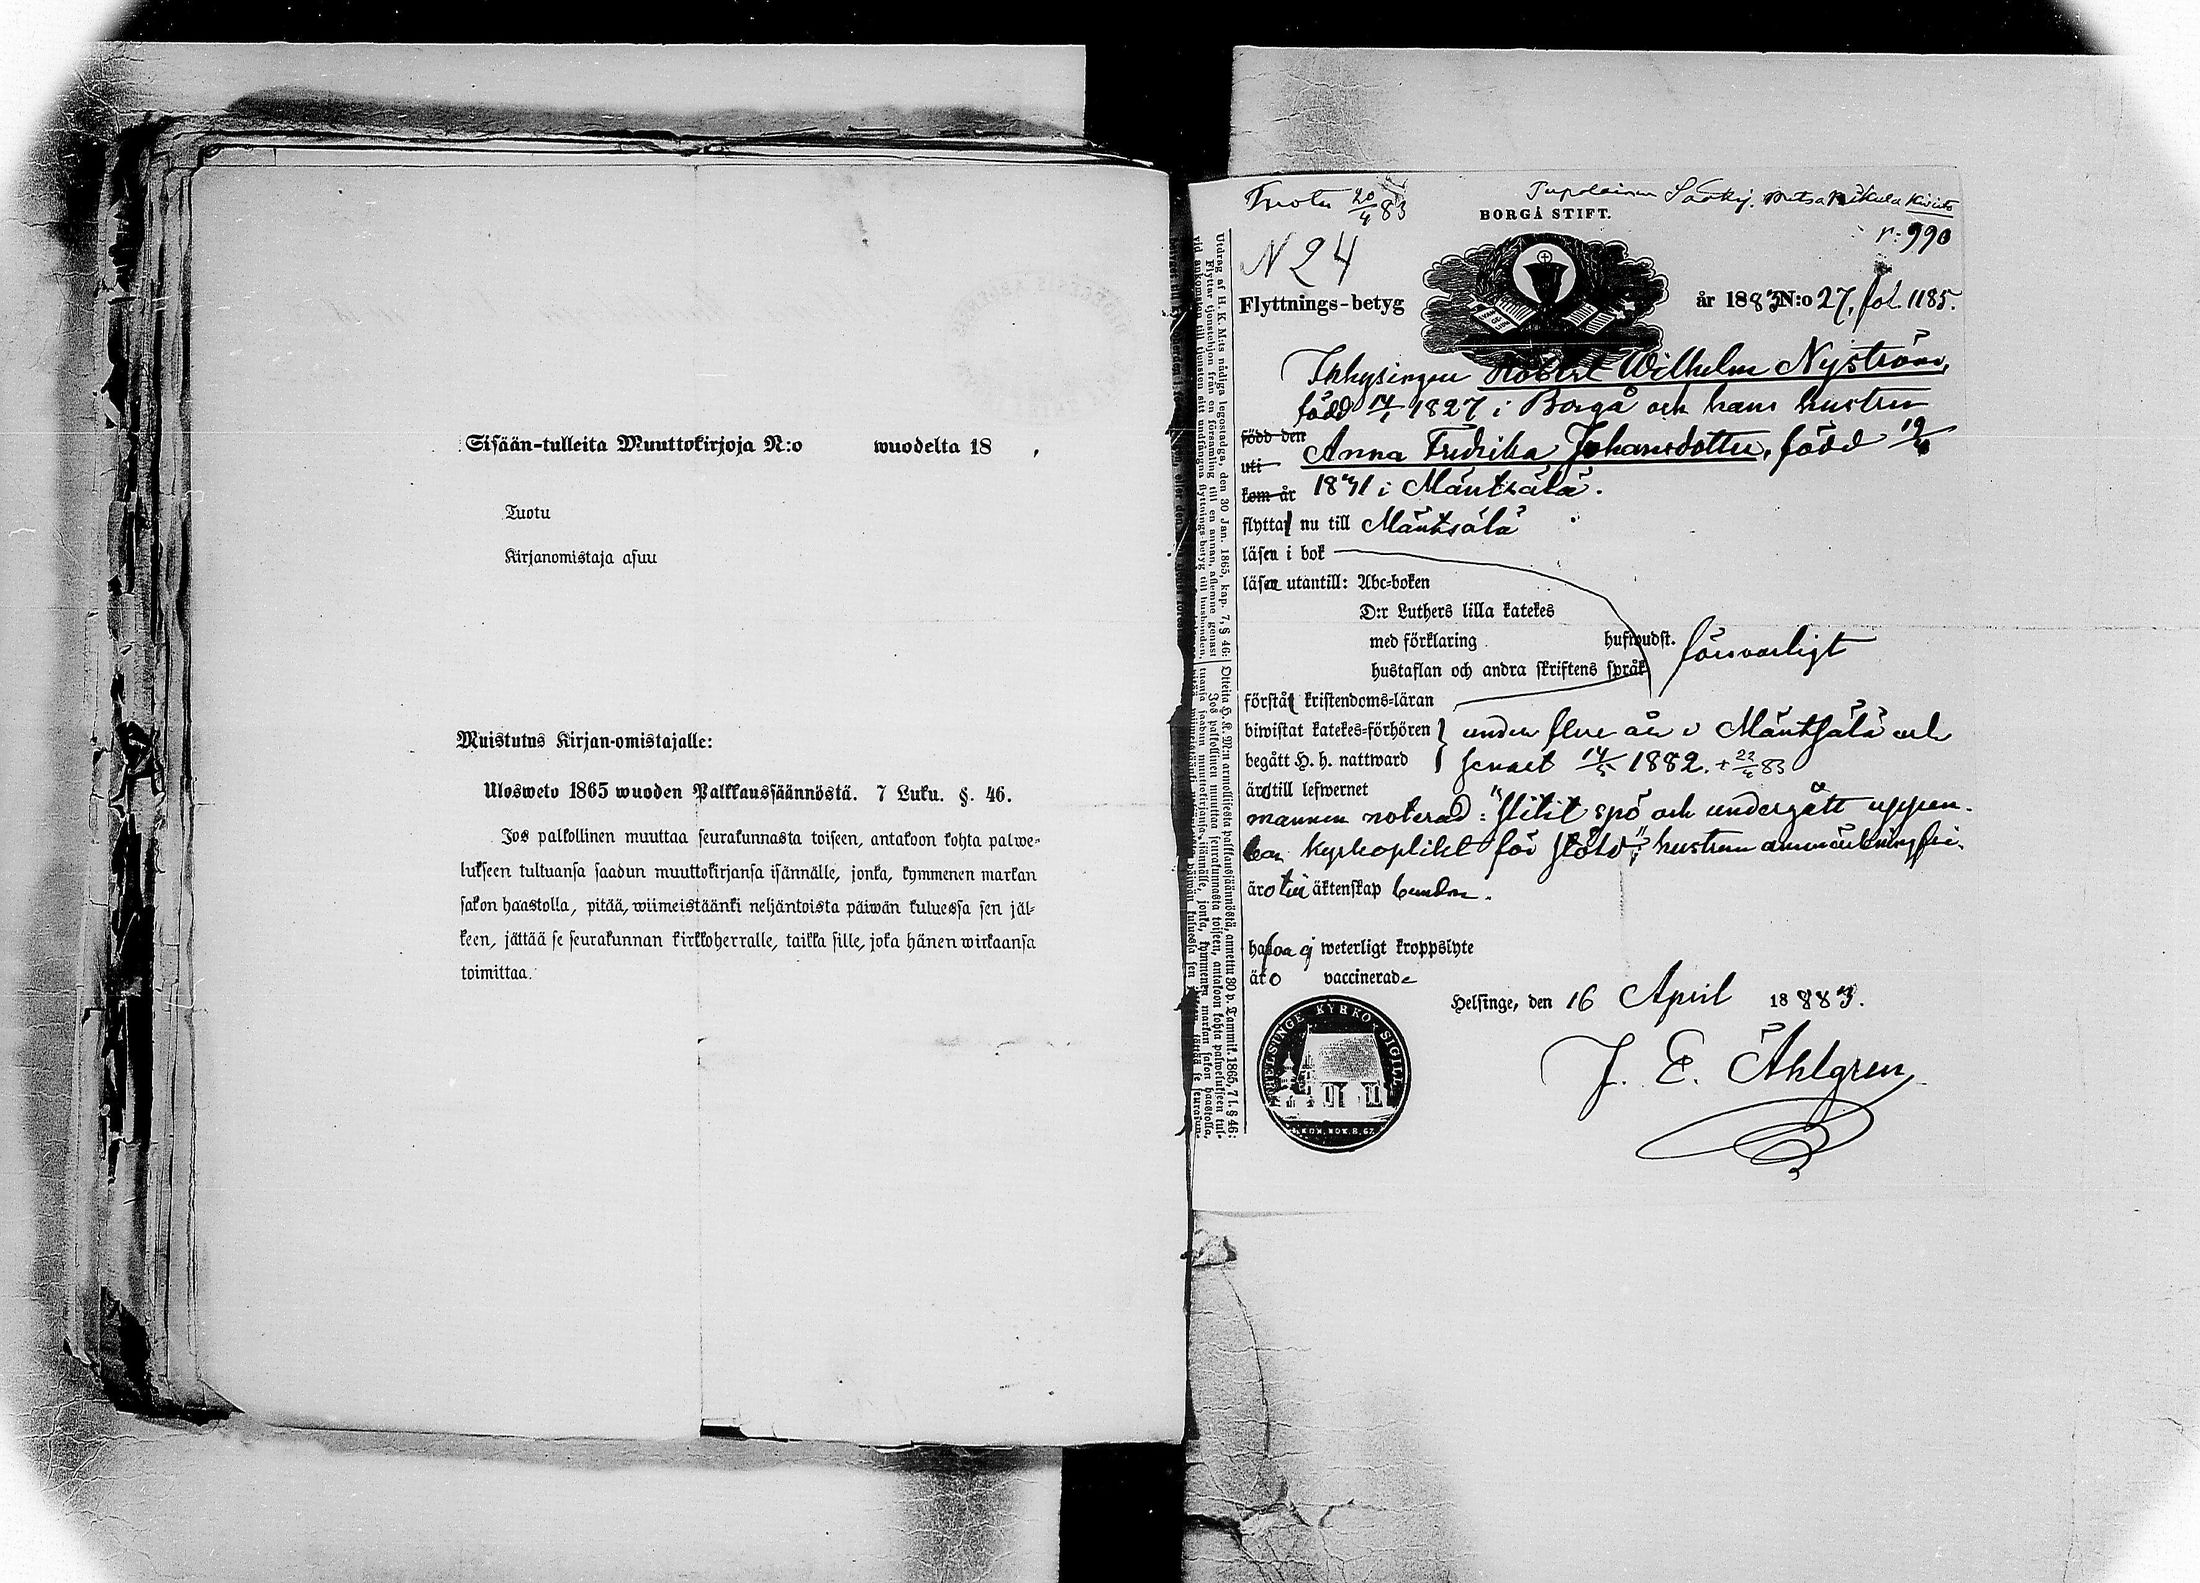 Sisään-tulleita Muuttokirjoja N:o wuodelta 18 ,
Tuotu
Kirjanomistaja asuu
Muistutus Kirjan-omistajalle:
Ulosweto 1865 wuoden Palkkaussäännöstä. 7 Luku. §. 46.
Jos palkollinen muuttaa seurakunnasta toiseen, antakoon kohta palwe-
lukseen tultuansa saadun muuttokirjansa isännälle, jonka, kymmenen markan
sakon haastolla, pitää, wiimeistäänki neljäntoista päiwän kuluessa sen jäl-
keen, jättää se seurakunnan kirkkoherralle, taikka sille, joka hänen wirkaansa
toimittaa.
Tuotu 20/4 83
BORGÅ STIFT.
r: 990
N 24
Flyttnings-betyg
år 1883 N:o 27, fol. 1185.
Inhysingen Robert Wilhelm Nyström,
född 14/1 1827 i Borgå och hans hustru
född den Anna Fredrika Johansdotter, född 19/
uti
kom år 1841 i Mäntsälä.
flytta nu till Mäntsälä
läsen i bok
läsa utantill: Abc-boken
D:r Luthers lilla katekes
med förklaring hufwudst. försvarligt
hustaflan och andra skriftens språk
förstå kristendoms-läran
biwistat katekes-förhören } under flere år i Mäntsälä och
begått H. h. nattward senast 14/5 1882. + 22/4 83
äro till lefwernet
mannen noterad: "slitit spö och undergått uppen-
bar kyrkoplikt för stöld", hustrun anmärkningsfri.
äro till äktenskap bundne.
hafwa ej weterligt kroppslyte
äro vaccinerade
Helsinge, den 16 April 1883.
J. E. Ahlgren
HELSINGE KYRKO SIGILL
Utdrag af H. K. M:ts nådiga legostadga, den 30 Jan. 1865, kap. 7, § 46:
Flyttar tjenstehjon från en församling till en annan, aflemne genast
vid ankomsten till tjensten sitt undfångna flyttnings-betyg till husbonden,
Otteita H. K. M:n armollisesta palkkaussäännöstä, annettu 30 p. Tammik. 1865, 7 l. § 46:
Jos palkollinen muuttaa seurakunnasta toiseen, antakoon kohta palwelukseen tul-
tuansa saadun muuttokirjansa isännälle, jonka, kymmenen markan sakon haastolla,